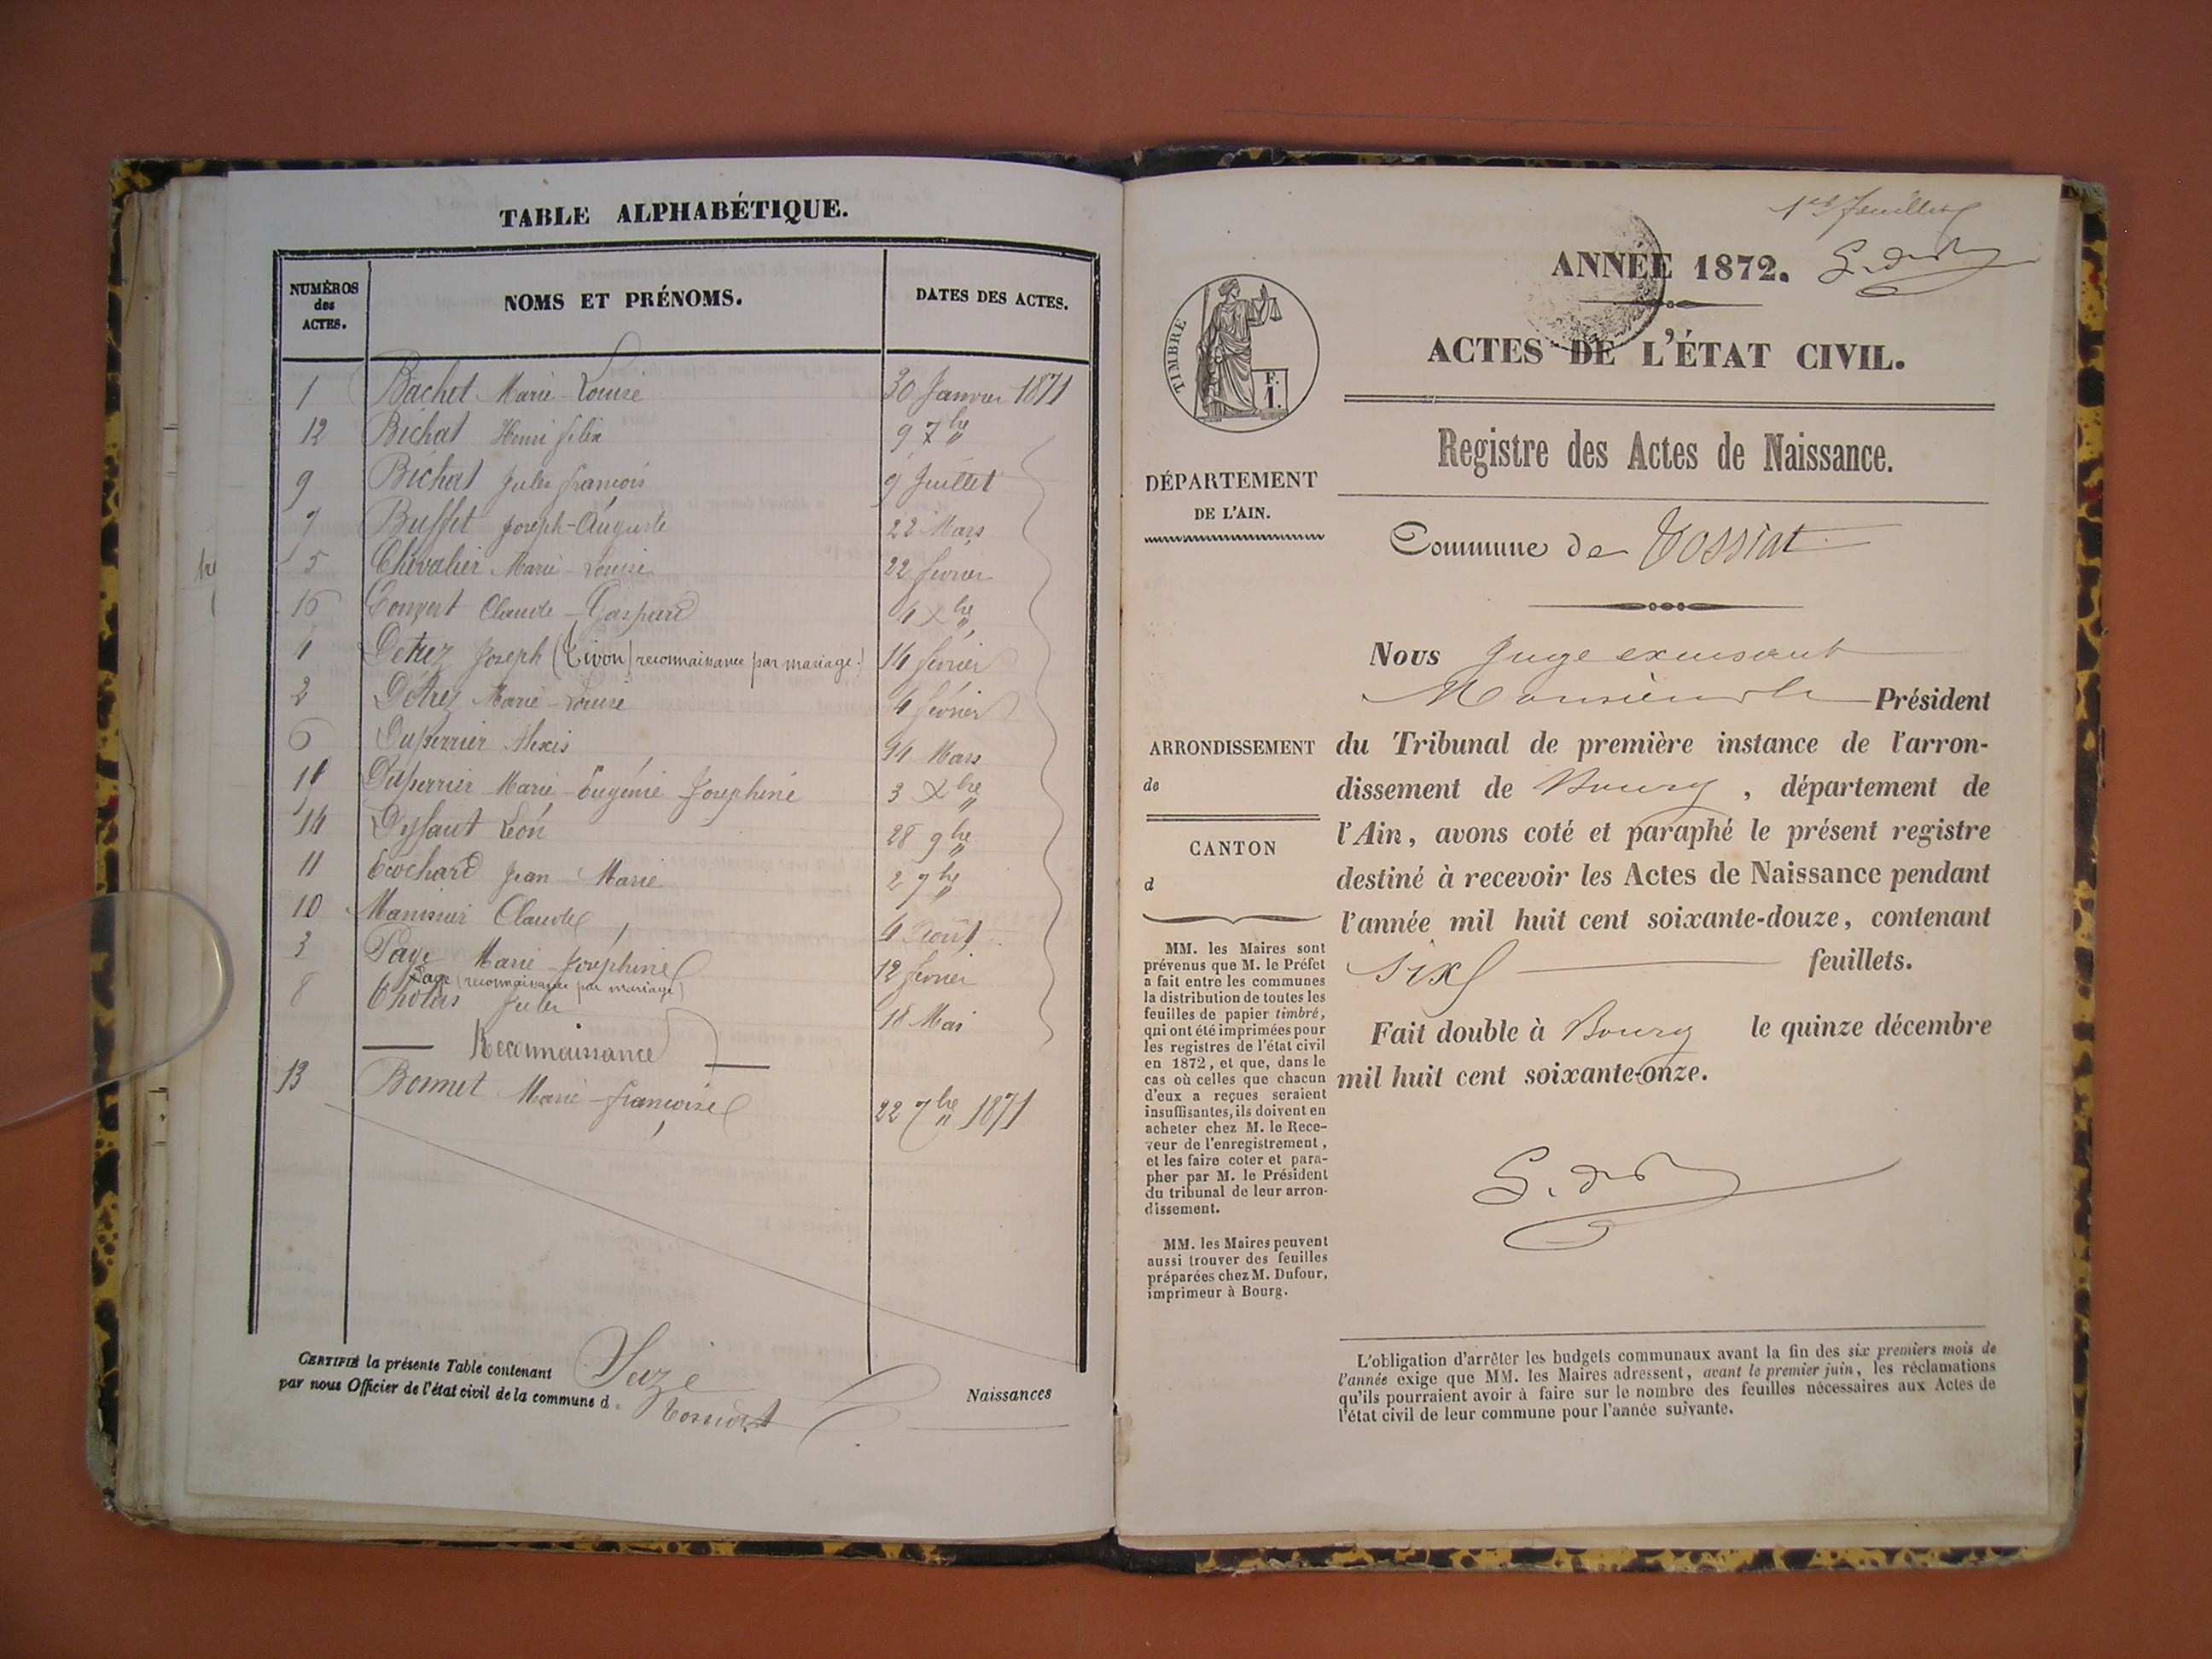 TABLE ALPHABÉTIQUE.
NUMÉROS des ACTES. NOMS ET PRÉNOMS. DATES DES ACTES.
1 Bachet Marie-Louise 30 Janvier 1871
12 Bichat Henri félix 9 7bre
9 Bichat Jules françois 9 Juillet
7 Buffet Joseph-Auguste 22 Mars
5 Chevalier Marie-Louise 22 février
Convert Claude-Gaspard 4 Xbre
4 Detrez Joseph (Tivon) reconnaissance par mariage.) 14 février
2 Détrez Marie-Louise 4 février
6 Duperrier Alexis Mars
Duperrier Marie-Eugénie Joséphine 3 Xbre
14 Léon 28 9bre
11 Ecochard Jean-Marie 2 7bre
10 Claude 4 Août
3 Page Marie-Joséphine 12 février
Page (reconnaissance par mariage)
8 Jules 18 Mai
Reconnaissance
13 Bonnet Marie-françoise 22 7bre 1871
CERTIFIÉ la présente Table contenant Seize Naissances
par nous Officier de l'état civil de la commune d Tossiat
1er feuillet
ANNÉE 1872.
ACTES DE L'ÉTAT CIVIL.
TIMBRE
F.
1.
Registre des Actes de Naissance.
DÉPARTEMENT
DE L'AIN.
Commune de Tossiat
Nous Juge excusant
Monsieur le Président
ARRONDISSEMENT
de
CANTON
d
du Tribunal de première instance de l'arron-
dissement de Bourg, département de
l'Ain, avons coté et paraphé le présent registre
destiné à recevoir les Actes de Naissance pendant
l'année mil huit cent soixante-douze, contenant
six feuillets.
Fait double à Bourg le quinze décembre
mil huit cent soixante-onze.
MM. les Maires sont
prévenus que M. le Préfet
a fait entre les communes
la distribution de toutes les
feuilles de papier timbré,
qui ont été imprimées pour
les registres de l'état civil
en 1872, et que, dans le
cas où celles que chacun
d'eux a reçues seraient
insuffisantes, ils doivent en
acheter chez M. le Rece-
veur de l'enregistrement,
et les faire coter et para-
pher par M. le Président
du tribunal de leur arron-
dissement.
MM. les Maires peuvent
aussi trouver des feuilles
préparées chez M. Dufour,
imprimeur à Bourg.
L'obligation d'arrêter les budgets communaux avant la fin des six premiers mois de
l'année exige que MM. les Maires adressent, avant le premier juin, les réclamations
qu'ils pourraient avoir à faire sur le nombre des feuilles nécessaires aux Actes de
l'état civil de leur commune pour l'année suivante.